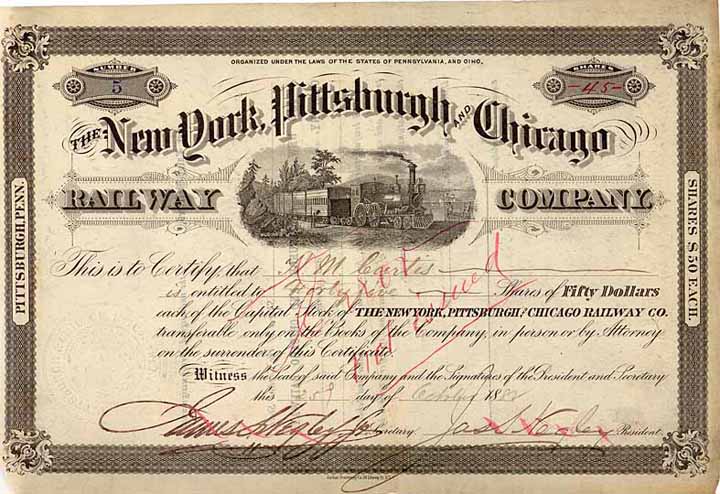 ORGANIZED UNDER THE LAWS OF THE STATES OF PENNSYLVANIA, AND OIHO.
NUMBER
5
SHARES
-45-
THE New York, Pittsburgh AND Chicago
RAILWAY COMPANY.
PITTSBURGH, PENN.
SHARES $50 EACH
This is to Certify that H. M. Curtis
is entitled to Forty five Shares of Fifty Dollars
each of the Capital Stock of THE NEW YORK, PITTSBURGH, AND CHICAGO RAILWAY CO.
transferable only on the Books of the Company, in person or by Attorney
on the surrender of this Certificate.
not issued
Witness the Seal of said Company and the Signatures of the President and Secretary
this 5th day of 1882
James S Negley Jr Secretary. Jas S Negley President.